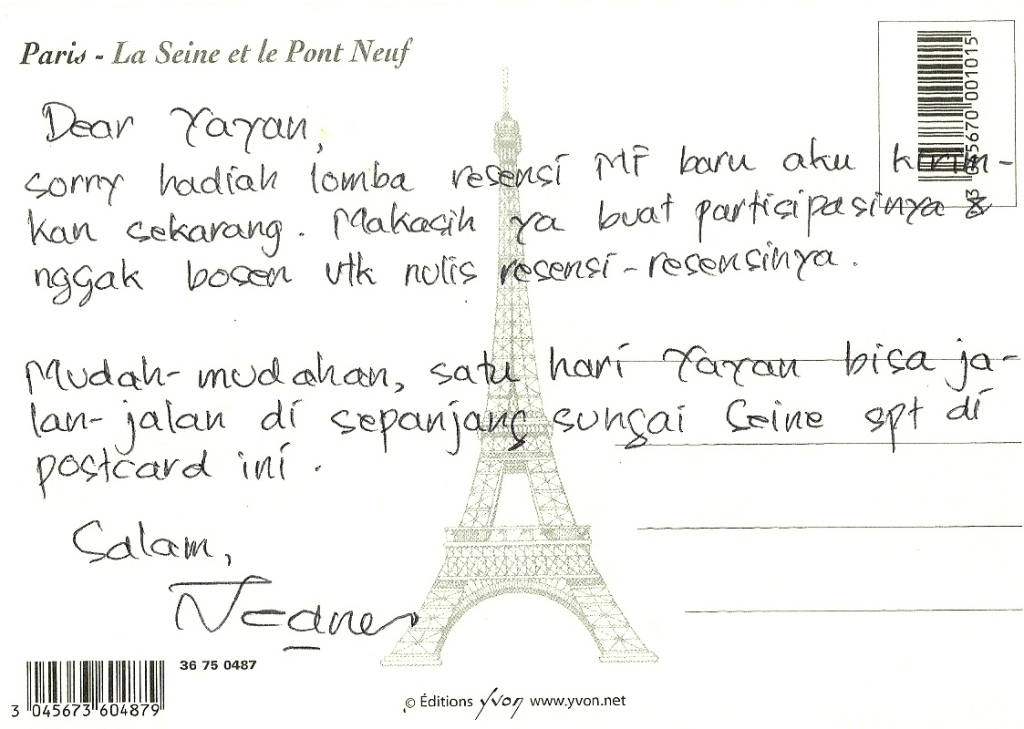 Paris - La Seine et le Pont Neuf
3 045670 001015
Dear Yayan,
sorry hadiah lomba resensi MF baru aku kirim-
kan sekarang. Makasih ya buat partisipasinya &
nggak bosen utk nulis resensi-resensinya.
Mudah-mudahan, satu hari Yayan bisa ja-
lan-jalan di sepanjang sungai Seine spt di
postcard ini.
Salam,
36 75 0487
3 045673 604879
© Éditions Yvon www.yvon.net